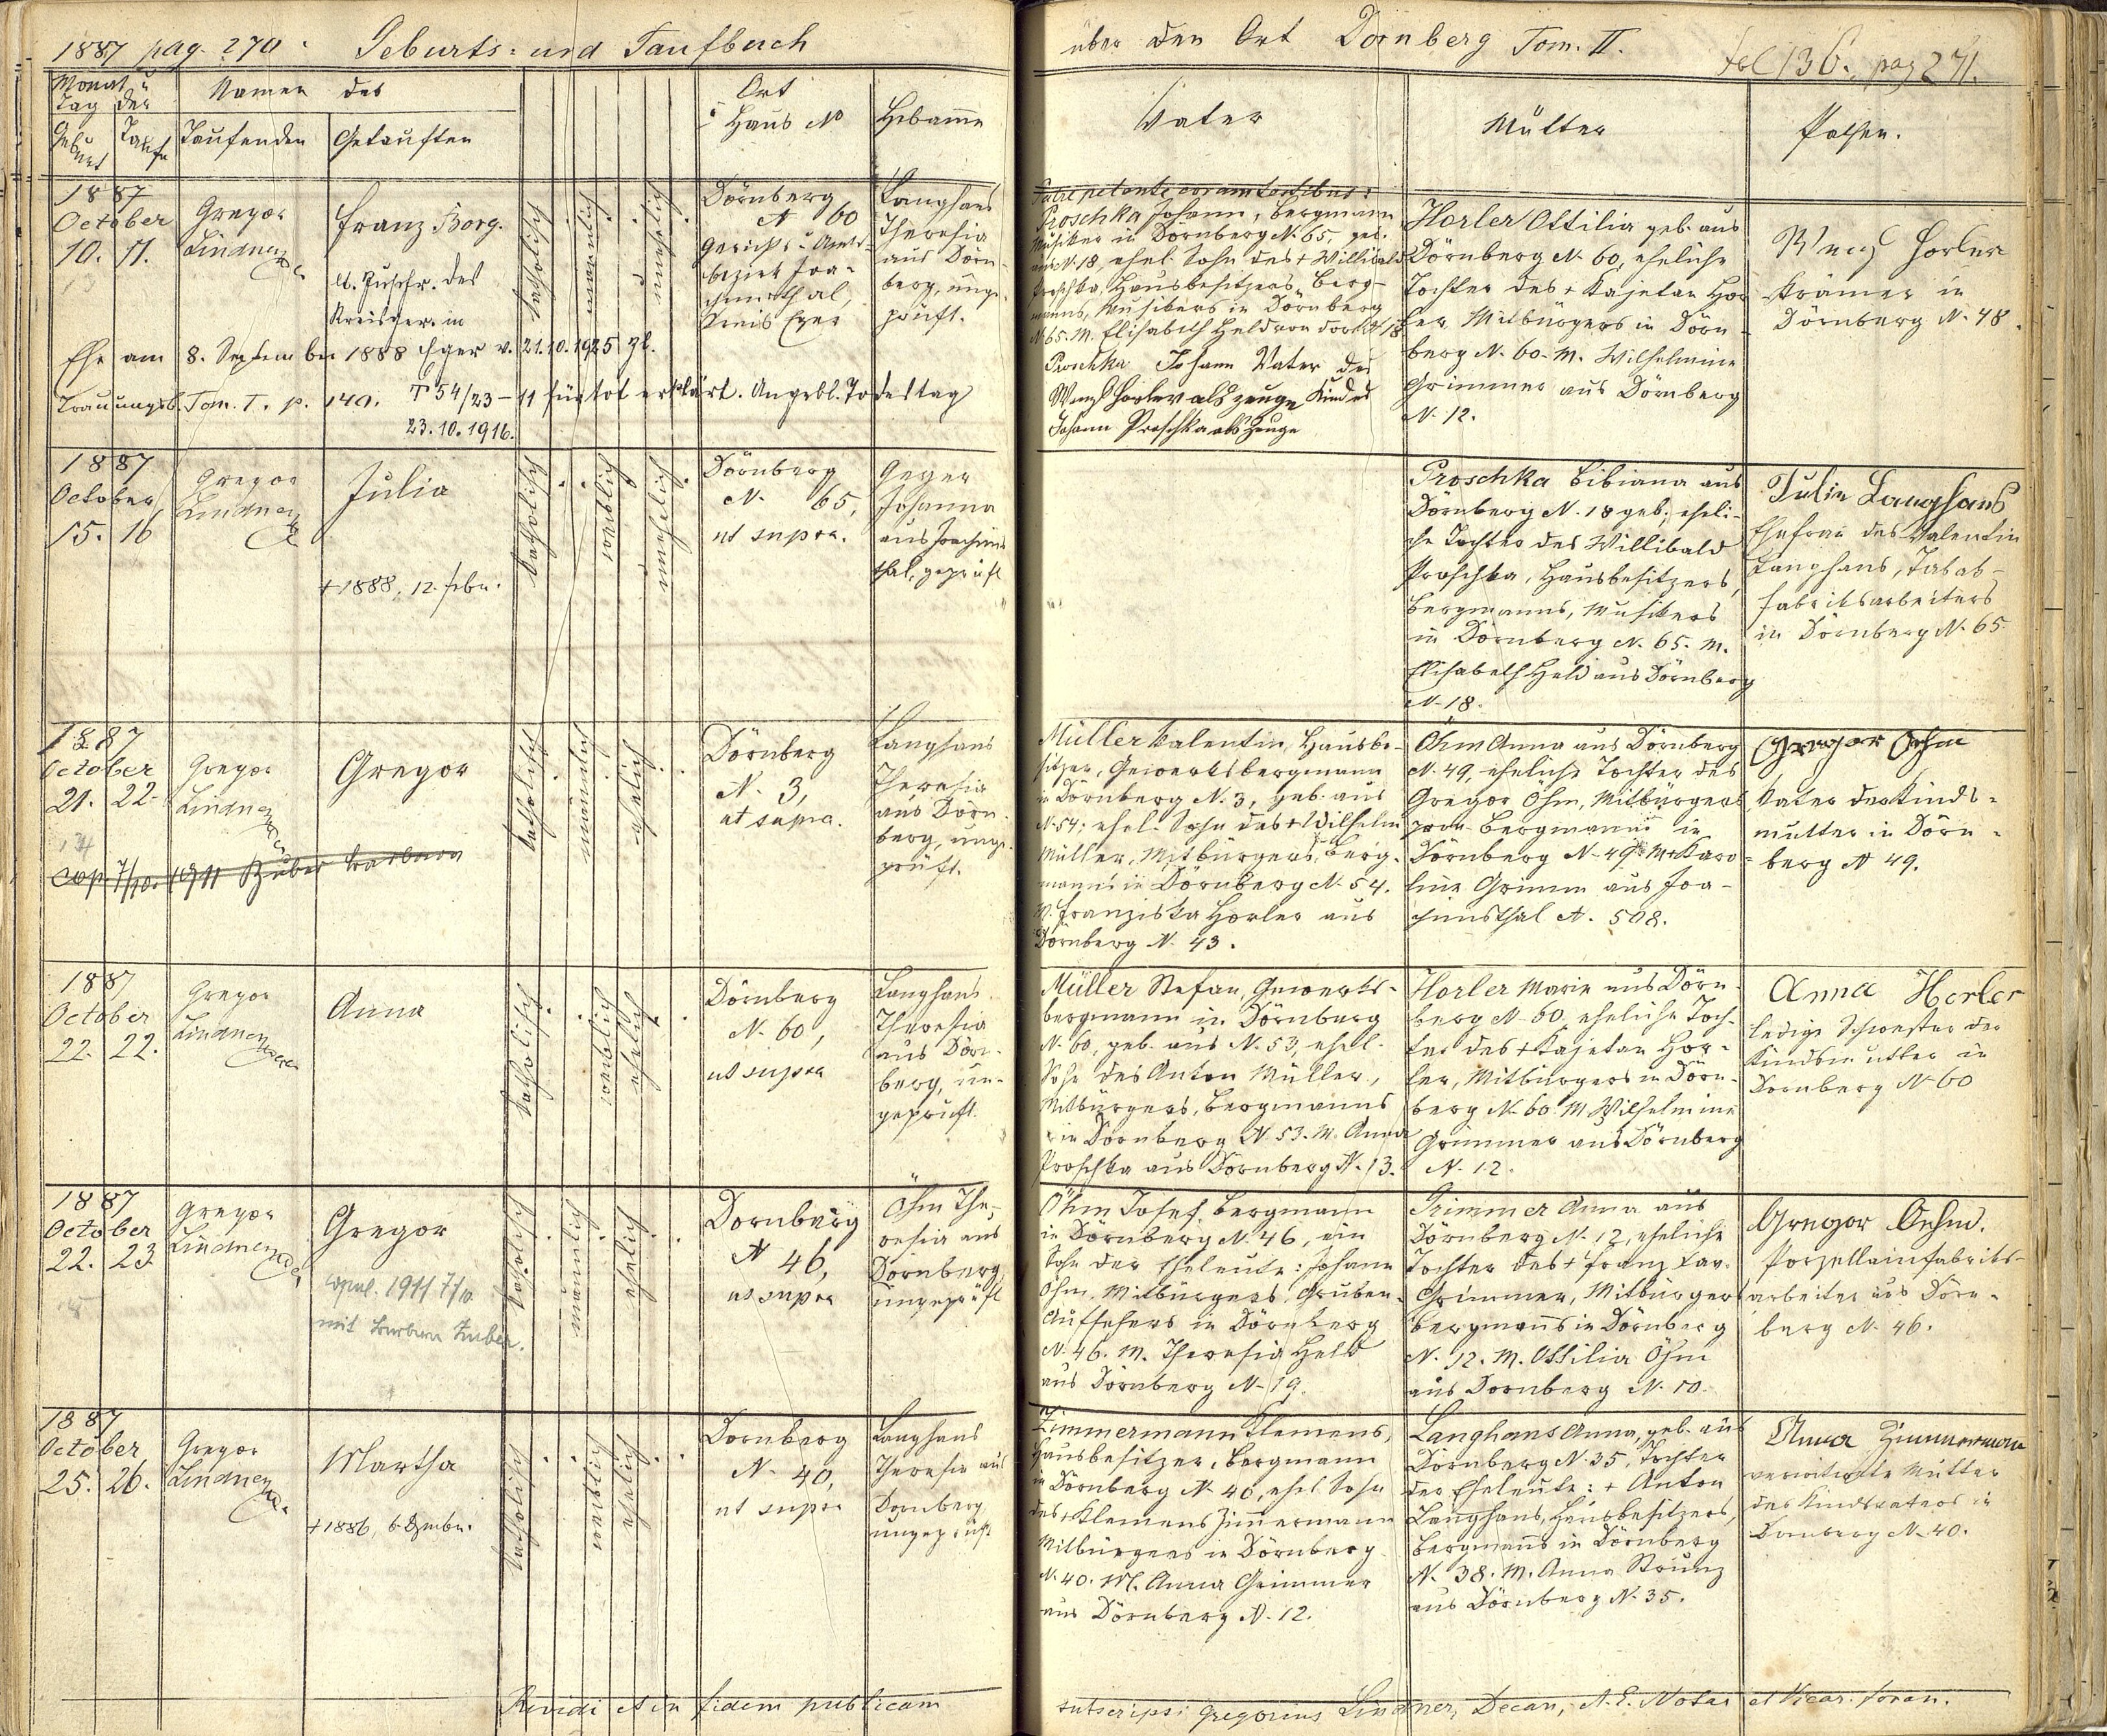 1887 pag. 270. Geburts- und Taufbuch
über den Ort Dörnberg Tom. II.
fol 136. pag 271.
Monat u
Tag der
Namen des
Ort
u Haus No
Hebame
Vater
Mutter
Pathen.
Geburt Taufe
Taufenden
Getauften
1887
October
10. 11.
Gregor
Lindner
Franz Borg.
lt. Zuschr. des
Kreisger. in
Eger v. 21.10.1925 Zl.
T 54/23-11 für tot erklärt. Angebl. Todestag
23.10.1916.
Ehe am 8. September 1888
Trauungsb. Tom. I. p. 140.
katholisch
männlich
unehelich
Dörnberg
N 60
Gerichts- u Amts-
bezirk Joa-
chimsthal,
Kreis Eger
Langhans
Theresia
aus Dörn-
berg, unge-
prüft.
Patre petente coram testibus:
Proschka Johann, Bergmann
Musiker in Dörnberg N. 65, geb.
aus N. 18, ehel. Sohn des + Willibald
Proschka, Hausbesitzers, Berg-
manns, Musikers in Dörnberg
N 65. M. Elisabeth Held von dort N 18
Proschka Johann Vater des
Kindes
Wenzl Horler als Zeuge
Johann Proschka als Zeuge
Horler Ottilia geb. aus
Dörnberg N. 60, eheliche
Tochter des + Kajetan Hor
ler Mitbürgers in Dörn-
berg N. 60. M. Wilhelmine
Grimmer aus Dörnberg
N. 12.
Wenzl Horler
Krämer in
Dörnberg N. 48.
1887
October
15. 16
Gregor
Lindner
Julia
+ 1888, 12. Febr.
katholisch
weiblich
unehelich
Dörnberg
N. 65,
ut supra.
Geyer
Johanna
aus Joachims
thal, geprüft
Proschka Bibiana aus
Dörnberg N. 18 geb., eheli-
che Tochter des Willibald
Proschka, Hausbesitzers,
Bergmanns, Musikers
in Dörnberg N. 65. M.
Elisabeth Held aus Dörnberg
N. 18.
Julie Langhans
Ehefrau des Valentin
Langhans, Tabak-
fabriksarbeiters
in Dörnberg N. 65
1887
October
21. 22.
Gregor
Lindner
Gregor
cop. 7/10. 1911 Zuber Barbara
katholisch
männlich
ehelich
Dörnberg
N. 3,
ut supra.
Langhans
Theresia
aus Dörn-
berg, unge-
prüft.
Müller Valentin, Hausbe-
sitzer, Gewerksbergmann
in Dörnberg N. 3, geb. aus
N. 54; ehel. Sohn des + Wilhelm
Müller, Mitbürgers, Berg-
manns in Dörnberg N. 54.
M. Franziska Horler aus
Dörnberg N. 43.
Öhm Anna aus Dörnberg
N. 49, eheliche Tochter des
Gregor Öhm, Mitbürgers
Bergmanns in
Dörnberg N. 49 M + Karo-
line Grimm aus Joa-
chimsthal N. 508.
Gregor Oehm
Vater der Kinds-
mutter in Dörn-
berg N 49.
1887
October
22. 22.
Gregor
Lindner
Anna
katholisch
weiblich
ehelich
Dörnberg
N. 60,
ut supra
Langhans
Theresia
aus Dörn-
berg, un-
geprüft.
Müller Stefan, Gewerks-
bergmann in Dörnberg
N. 60, geb. aus N. 53, ehel.
Sohn des Anton Müller,
Mitbürgers, Bergmanns
in Dörnberg N 53. M. Anna
Proschka aus Dörnberg N. 13.
Horler Marie aus Dörn-
berg N 60 eheliche Toch-
ter des + Kajetan Hor-
ler, Mitbürgers in Dörn-
berg N. 60 M Wilhelmine
Grimmer aus Dörnberg
N. 12.
Anna Horler
ledige Schwester der
Kindsmutter in
Dörnberg N 60
1887
October
22. 23.
Gregor
Lindner
Gregor
copul. 1911 7/10
mit Barbara Zuber.
katholisch
männlich
ehelich
Dörnberg
N 46,
ut supra
Öhm The-
resia aus
Dörnberg,
ungeprüft
Öhm Josef Bergmann
in Dörnberg N. 46, ein
Sohn der Eheleute: Johann
Öhm, Mitbürgers, Gruben-
Aufsehers in Dörnberg
N. 46. M. Theresia Held
aus Dörnberg N. 19.
Grimmer Anna aus
Dörnberg N. 12, eheliche
Tochter des + Franz Xav.
Grimmer, Mitbürgers
Bergmanns in Dörnberg
N. 12. M. Ottilia Öhm
aus Dörnberg N. 10.
Gregor Oehm.
Porzellainfabriks-
arbeiter aus Dörn-
berg N. 46.
1887
October
25. 26.
Gregor
Lindner
Martha
+ 1886, 6. Dzmbr.
katholisch
weiblich
ehelich
Dörnberg
N. 40,
ut supra
Langhans
Theresia aus
Dörnberg
ungeprüft
Zimmermann Klemens,
Hausbesitzer, Bergmann
in Dörnberg N. 40, ehel Sohn
des + Klemens Zimmermann
Mitbürgers in Dörnberg
N. 40. M. Anna Grimmer
aus Dörnberg N. 12.
Langhans Anna, geb. aus
Dörnberg N. 35, Tochter
der Eheleute: + Anton
Langhans, Hausbesitzers,
Bergmanns in Dörnberg
N. 38. M. Anna Strunz
aus Dörnberg N. 35.
Anna Zimmermann
verwitwete Mutter
des Kindsvaters in
Dörnberg N. 40.
Revidi et in fidem publicam
subscripsi Gregorius Lindner, Decan, A. E. Notar et Vicar. foran.